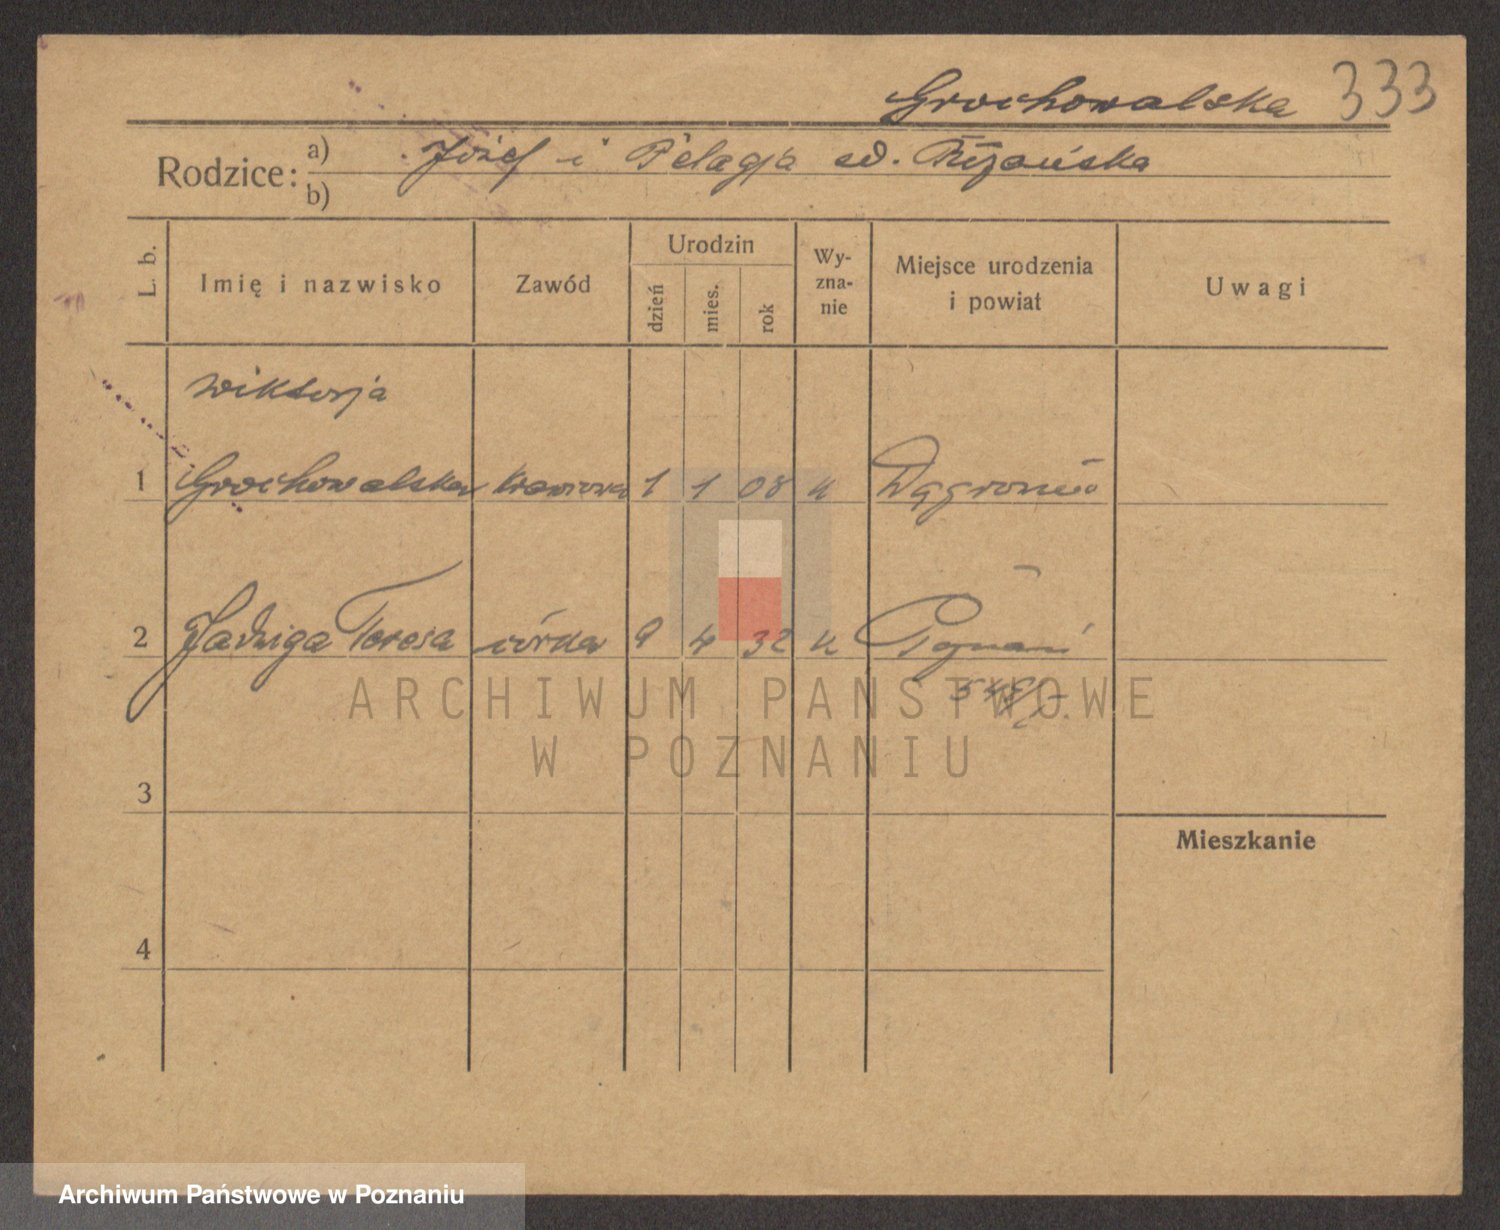 Grochowalska 333
Rodzice: a) Józef i Pelagja
b)
L. b. Imię i nazwisko Zawód Urodzin dzień mies. rok Wy-zna-nie Miejsce urodzenia i powiat Uwagi
Wiktorja
1 Grochowalska krawcowa 1 1 08 k
2 Jadwiga Teresa córka 9 4 32 k Poznań
ARCHIWUM PAŃSTWOWE
W POZNANIU
3
Mieszkanie
4
Archiwum Państwowe w Poznaniu